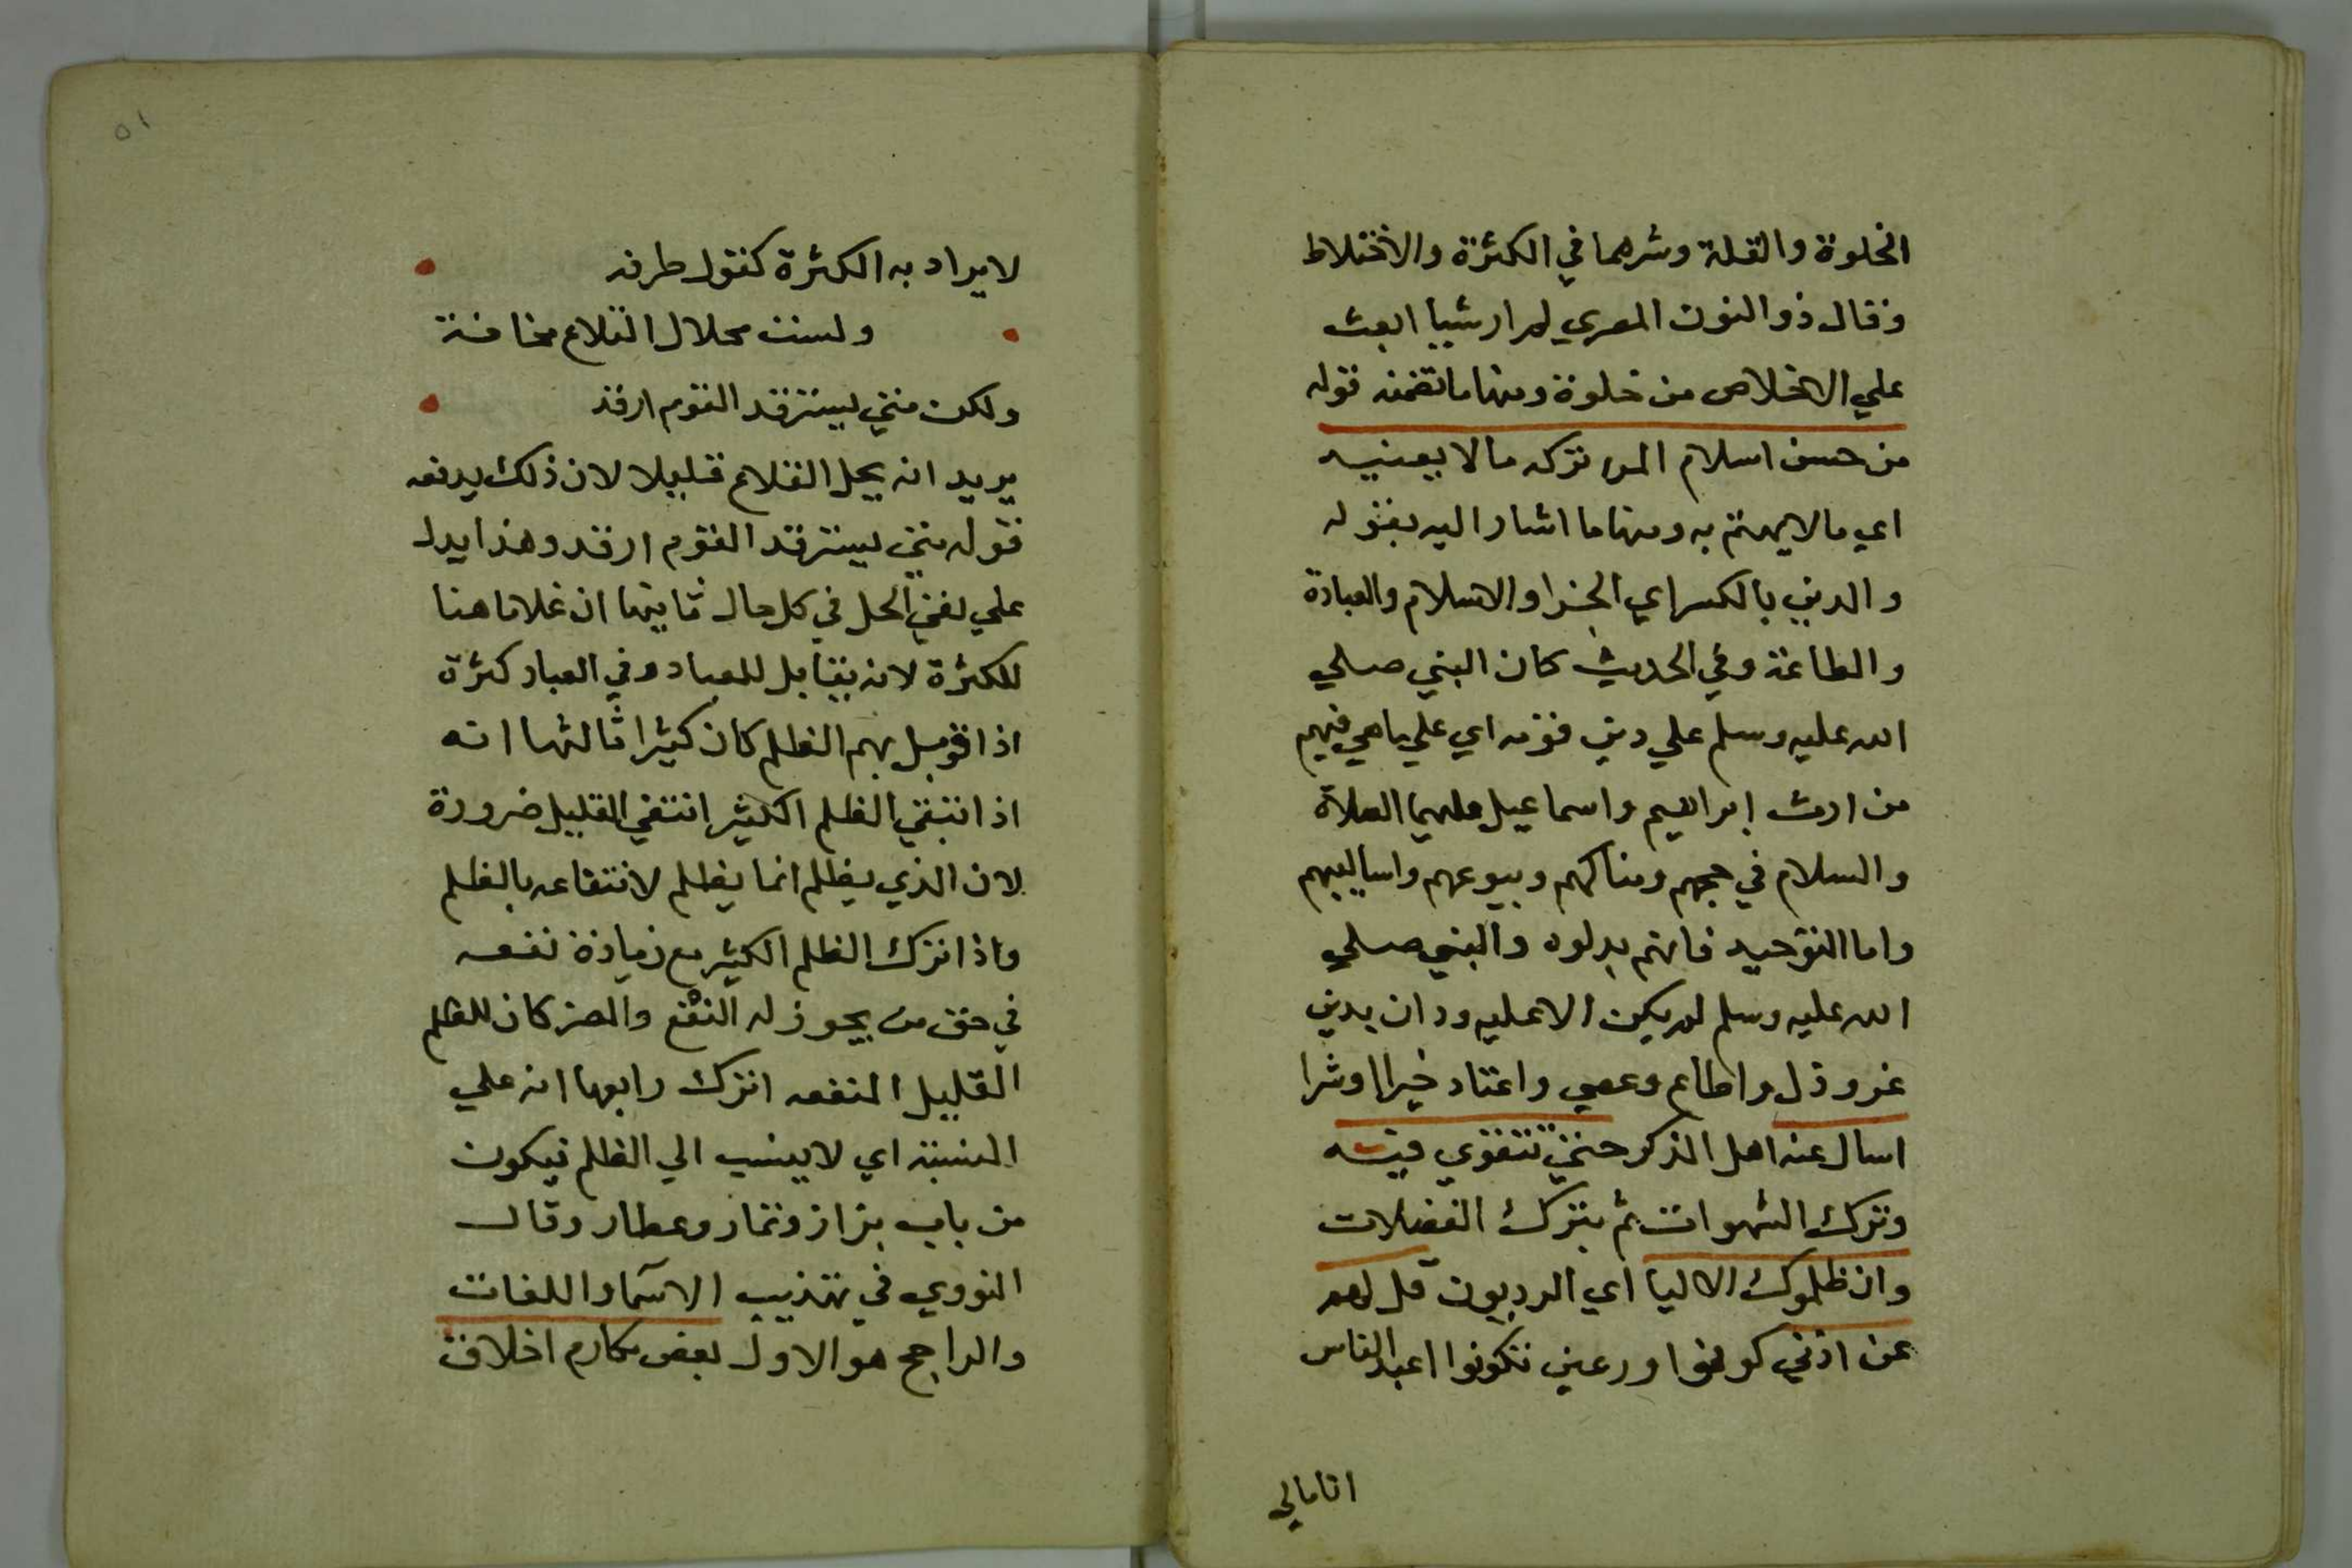 الخلوة والقلة وشرهما في الكثرة والاختلاط
وقال ذو النون المصري لم ار شيا ابعث
علي الاخلاص من خلوة ومنها ما تضمنه قوله
من حسن اسلام المرء تركه مالا يعنيه
اي مالا يهتم به ومنها ما اشار اليه بقوله
والدين بالكسر اي الجزا والاسلام والعبادة
والطاعة وفي الحديث كان النبي صلي
الله عليه وسلم علي دين قومه اي علي ما هي فيهم
من ارث ابراهيم واسماعيل عليهما الصلاة
والسلام في حجهم ومناكحهم وبيوعهم واساليبهم
واما التوحيد فانهم بدلوه والنبي صلي
الله عليه وسلم لم يكن الا عليه ودان يدين
عز وذل واطاع وعصي واعتاد خيرا اوشرا
اسال عنه اهل الذكر حتي تتقوي فيه
وترك الشهوات ثم بترك الفضلات
وان ظلموك الاليا اي الرديون قل لهم
عن اذني كونوا ورعين تكونوا اعبد الناس
اتا مالي
٥١
لا يراد به الكثرة كقول طرفه
ولست بحلال التلاع مخافة
ولكن متي يسترفد القوم ارفد
يريد انه يحل التلاع قليلا لان ذلك يدفعه
قوله متي يسترفد القوم ارفد وهذا يدل
علي نفي الحل في كل حال ثانيها ان غلاما هنا
للكثرة لانه يقابل للعباد وفي العباد كثرة
اذا قوبل بهم الظلم كان كثيرا ثالثها انه
اذا انتفي الظلم الكثير انتفي القليل ضرورة
لان الذي يظلم انما يظلم لانتفاعه بالظلم
واذا انترك الظلم الكثير مع زيادة نفعه
في حق من يجوز له النفع والضر كان للظلم
القليل المنفعه انترك رابعها انه علي
النسبة اي لا ينسب الي الظلم فيكون
من باب بزاز وتمار وعطار وقال
النووي في تهذيب الاسما واللغات
والراجح هو الاول بعض مكارم اخلاق